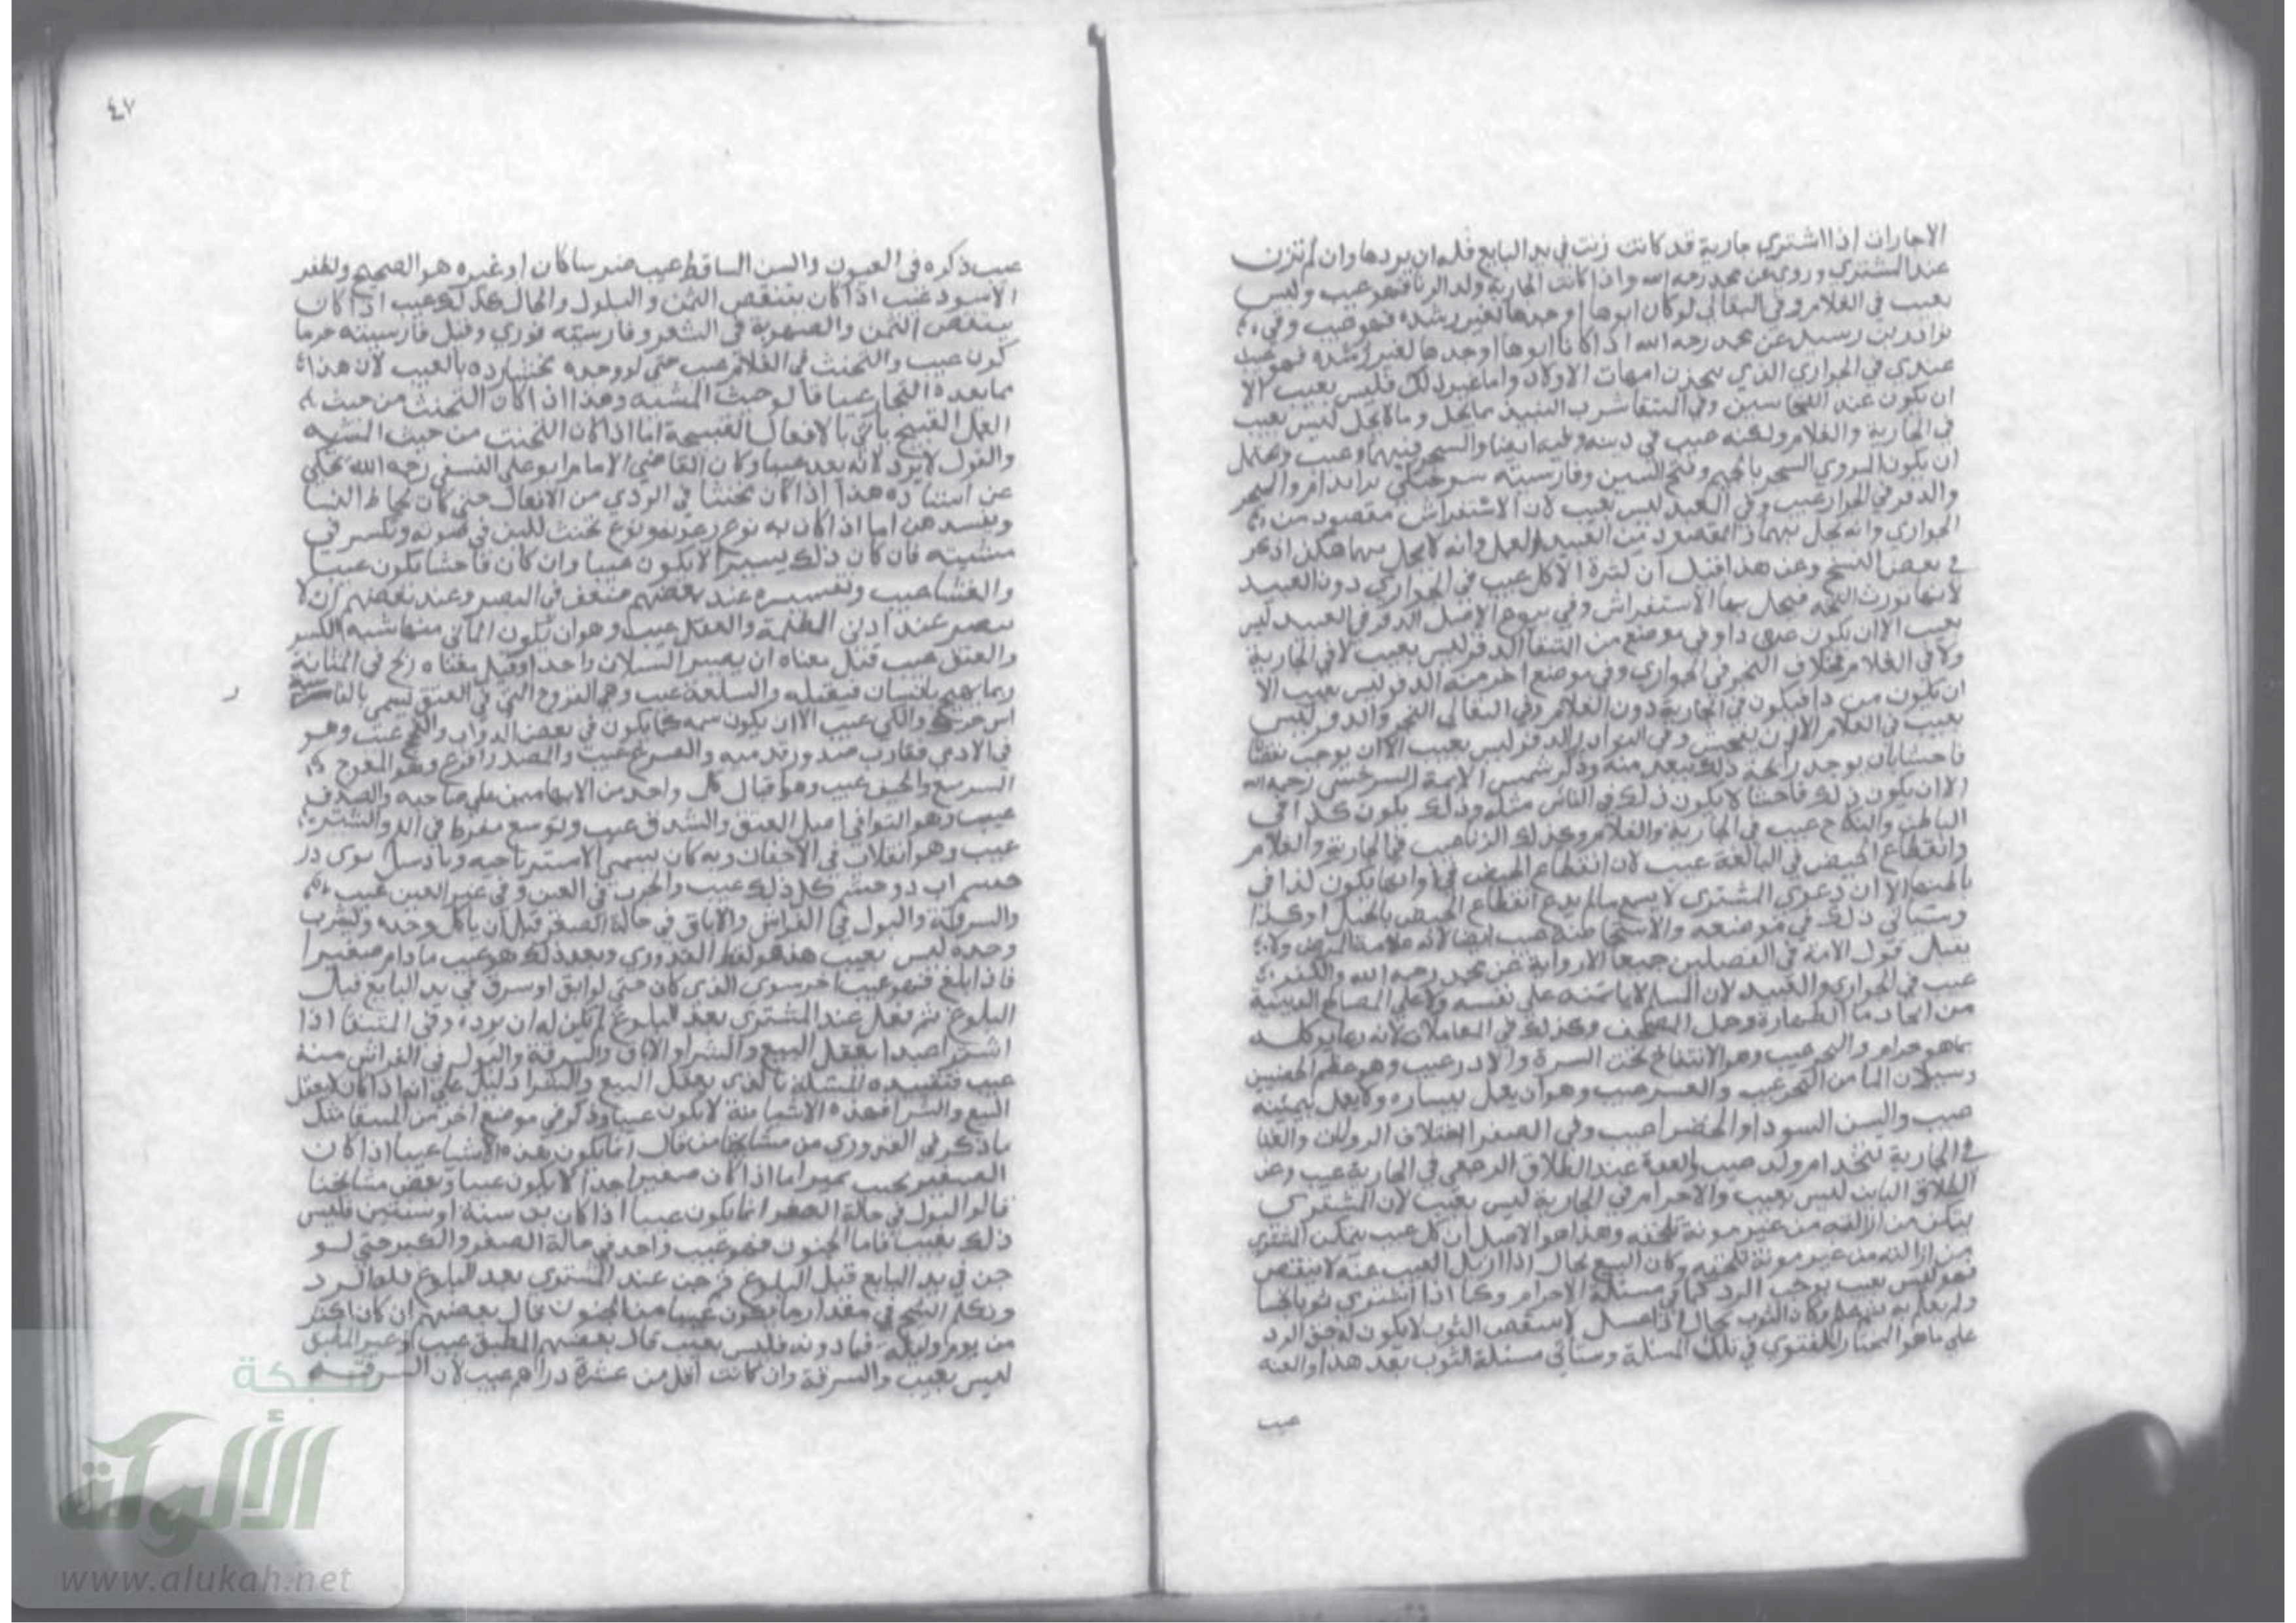 الاجارات اذا اشتري جارية قد كانت زنت في يد البايع فله ان يردها وان لم تزن
عند المشتري وروي عن محمد رحمه الله واذا كانت الجارية ولد الزنا فهو عيب وليس
بعيب في الغلام وفي البقالي لوكان ابوها او جدها لغير رشده فهو عيب وفي
نوادر بن رستم عن محمد رحمه الله اذا كانا ابوها او جدها لغير رشده فهو عيب
عندي في الجواري الذي يتخذن امهات الاولاد واما غير ذلك فليس بعيب الا
ان يكون عند النخاسين وفي المنتقا شرب النبيذ مما يحل وما لا يحل ليس بعيب
في الجارية والغلام ولكنه عيب في دينه وفيه ايضا والبخر فيهما عيب ويحتمل
ان يكون المروي البجر بالجيم وفتح
والدفر في الجوار عيب وفي العبد ليس بعيب لان الاستفراش مقصود من
الجواري وانه يخل بهما ذا المقصود من العبيد العمل وانه لا يخل بهما هكذا ذكر
في بعض النسخ وعن هذا قيل ان كثرة الاكل عيب في الجواري دون العبيد
لانها تورث التخمه فيخل بها الاستفراش وفي بيوع الاصل الدفر في العبيد ليس
بعيب الا ان يكون من داو في موضع من المنتقا الدفر ليس بعيب لا في الجارية
ولا في الغلام بخلاف البخر في الجواري وفي موضع اخر منه الدفر ليس بعيب الا
ان يكون من دا فيكون في الجارية دون الغلام وفي البقالي البخر والدفر ليس
بعيب في الغلام الا ان يفحش وفي النوادر الدفر ليس بعيب الا ان يوجب نقصا
فاحشا بان يوجد رائحة ذلك ببعد منه وذكر شمس الايمة السرخسي رحمه الله
الا ان يكون ذلك فاحشا لا يكون ذلك في الناس مثله وذلك يكون لدا في
الباطن والنكاح عيب في الجارية والغلام وكذلك الزنا عيب في الجارية والغلام
وانقطاع الحيض في البالغة عيب لان انقطاع الحيض في اوانها يكون لدا في
باطنها الا ان دعوي المشتري لا يسمع ما لم يدع انقطاع الحيض بالحبل او كذا
وستاتي ذلك في موضعه والاستحاضة عيب ايضا لانه علامة المرض ولا
يقبل قول الامة في الفصلين جميعا الا رواية عن محمد رحمه الله والكفر
عيب في الجواري والعبيد لان المسلم لا ياتمنه علي نفسه ولا علي المصالح الدينية
من اتخاد ما الطهارة وحمل المصحف وكذلك في المعاملات لانه ربما يوكله
بما هو حرام والبجر عيب وهو الانتفاخ تحت السرة والادر عيب وهو عظم الخصيتين
وسيلان الما من المنخر عيب والعسر عيب وهو ان يعمل بيساره ولا يعمل بيمينه
عيب والسن السودا والخضرا عيب وفي الصفرا اختلاف الروايات والغنا
في الجارية تتخذ ام ولد عيب والعدة عند الطلاق الرجعي في الجارية عيب وعن
الطلاق الباين ليس بعيب والاحرام في الجارية ليس بعيب لان المشتري
يتمكن من ازالته من غير مونة تلحقه وهذا هو الاصل ان كل عيب يتمكن المشتري
من ازالته من غير مونة تلحقه وكان المبيع بحال اذا ازيل العيب عنه لا ينتقص
فهو ليس بعيب يوجب الرد كما في مسئلة الاحرام وكما اذا اشتري ثوبا نجسا
ولم يعلم به وكان الثوب بحال اذا غسل لا ينتقص الثوب لا يكون له حق الرد
علي ما هو المختار للفتوي في تلك المسئلة وستاتي مسئلة الثوب بعد هذا والعنه
عيب
٤٧
عيب ذكره في العيون والسن الساقط عيب ضرسا كان او غيره هو الصحيح والظفر
الاسود عيب اذا كان ينتقص الثمن والسلول والخال كذلك عيب اذا كان
ينتقص الثمن والصهوبة في الشعر وفارسيته
كون عيب والتخنث في الغلام عيب حتي لو وجده مخنثا رده بالعيب لان هذا
مما يعده التجار عيبا قالوا حيث المشيه وهذا اذا كان التخنث من حيث
العمل القبيح ياتي بالافعال القبيحة اما اذا كان التخنث من حيث التشبه
والقول لا يرد لانه يعد عيبا وكان القاضي الامام ابو علي النسفي رحمه الله يحكي
عن استاده هذا اذا كان مخنثا في الردي من الافعال حتي كان يخالط النسا
ويفسدهن اما اذا كان به نوع رعونه ونوع تخنث للين في صوته وتكسر في
مشيته فان كان ذلك يسيرا لا يكون عيبا وان كان فاحشا يكون عيبا
والعشا عيب وتفسيره عند بعضهم ضعف في البصر وعند بعضهم ان لا
يبصر عند ادني الظلمة والعفل عيب وهو ان يكون الماتي منها شبه الكسر
والفتق عيب قيل معناه ان يصير السبلان واحدا وقيل معناه ريح في المثانة
ربما يهيج بانسان فيقتله والسلعة عيب وهي القروح التي في العنق ليسمي بالفارسية
والكي عيب الا ان يكون سمه كما يكون في بعض الدواب عيب وهو
في الادمي
السريع والحنف عيب وهو اقبال كل واحد من الابهامين علي صاحبه والصدف
عيب وهو التوا في اصل العنق والشدق عيب وتوسع مفرط في الفم والشتر
عيب وهو انقلاب في الاجفان وبه كان يسمي الاشتر
كل ذلك عيب والجرب في العين وفي غير العين عيب
والسرقة والبول في الفراش والاباق في حالة الصغر قبل ان ياكل وحده ويشرب
وحده ليس بعيب هذا هو لفظ القدوري وبعد ذلك هو عيب ما دام صغيرا
فاذا بلغ فهو عيب اخر سوي الذي كان حتي لو ابق او سرق في يد البايع قبل
البلوغ ثم فعل عند المشتري بعد البلوغ لم يكن له ان يرده وفي المنتقا اذا
اشترا عبدا يعقل البيع والشرا والاباق والسرقة والبول في الفراش منه
عيب فتقييده المسئلة بالذي يعقل البيع والشرا دليل علي انه اذا كان لا يعقل
البيع والشرا فهذه الاشيا منه لا يكون عيبا وذكر في موضع اخر من المنتقا مثل
ما ذكر في القدوري من مشايخنا من قال انما يكون هذه الاشيا عيبا اذا كان
الصغير بحيث يميز اما اذا كان صغيرا جدا لا يكون عيبا وبعض مشايخنا
قالوا البول في حالة الصغر انما يكون عيبا اذا كان بن سنة او سنتين فليس
ذلك بعيب فاما الجنون فهو عيب واحد في حالة الصغر والكبر حتي لو
جن في يد البايع قبل البلوغ ثم جن عند المشتري بعد البلوغ فله الرد
وتكلم الشيخ في مقدار ما يكون عيبا من الجنون قال بعضهم ان كان اكثر
من يوم وليلة فما دونه فليس بعيب قال بعضهم المطبق عيب وغير المطبق
ليس بعيب والسرقة وان كانت اقل من عشرة دراهم عيب لان السرقة
شبكة
الألوكة
www.alukah.net